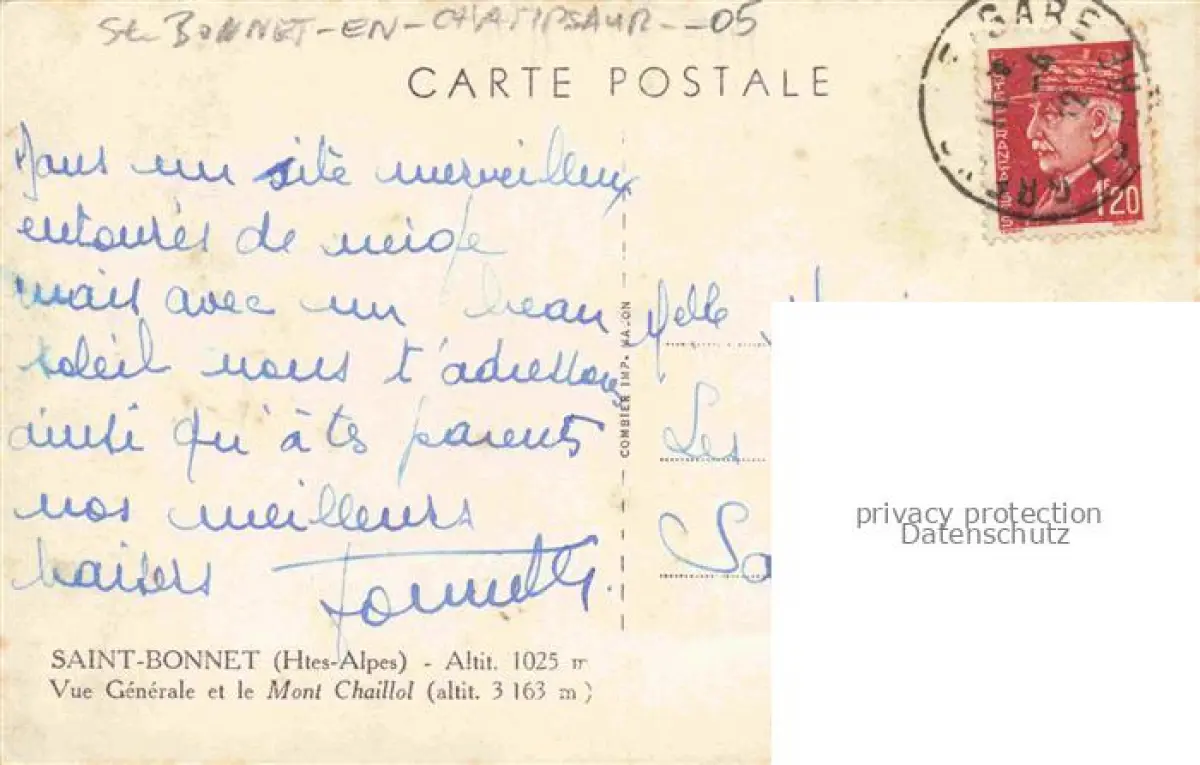 St BONNET-EN-CHAMPSAUR - 05
CARTE POSTALE
GARE
POSTES FRANÇAISES
1F20
Dans un site merveilleux
entourés de neige
mais avec un beau
soleil nous t'adressons
ainsi qu'à tes parents
nos meilleurs
baisers
COMBIER IMP. MACON
Melle
Les
privacy protection
Datenschutz
SAINT-BONNET (Htes-Alpes) - Altit. 1025 m
Vue Générale et le Mont Chaillol (altit. 3 163 m)